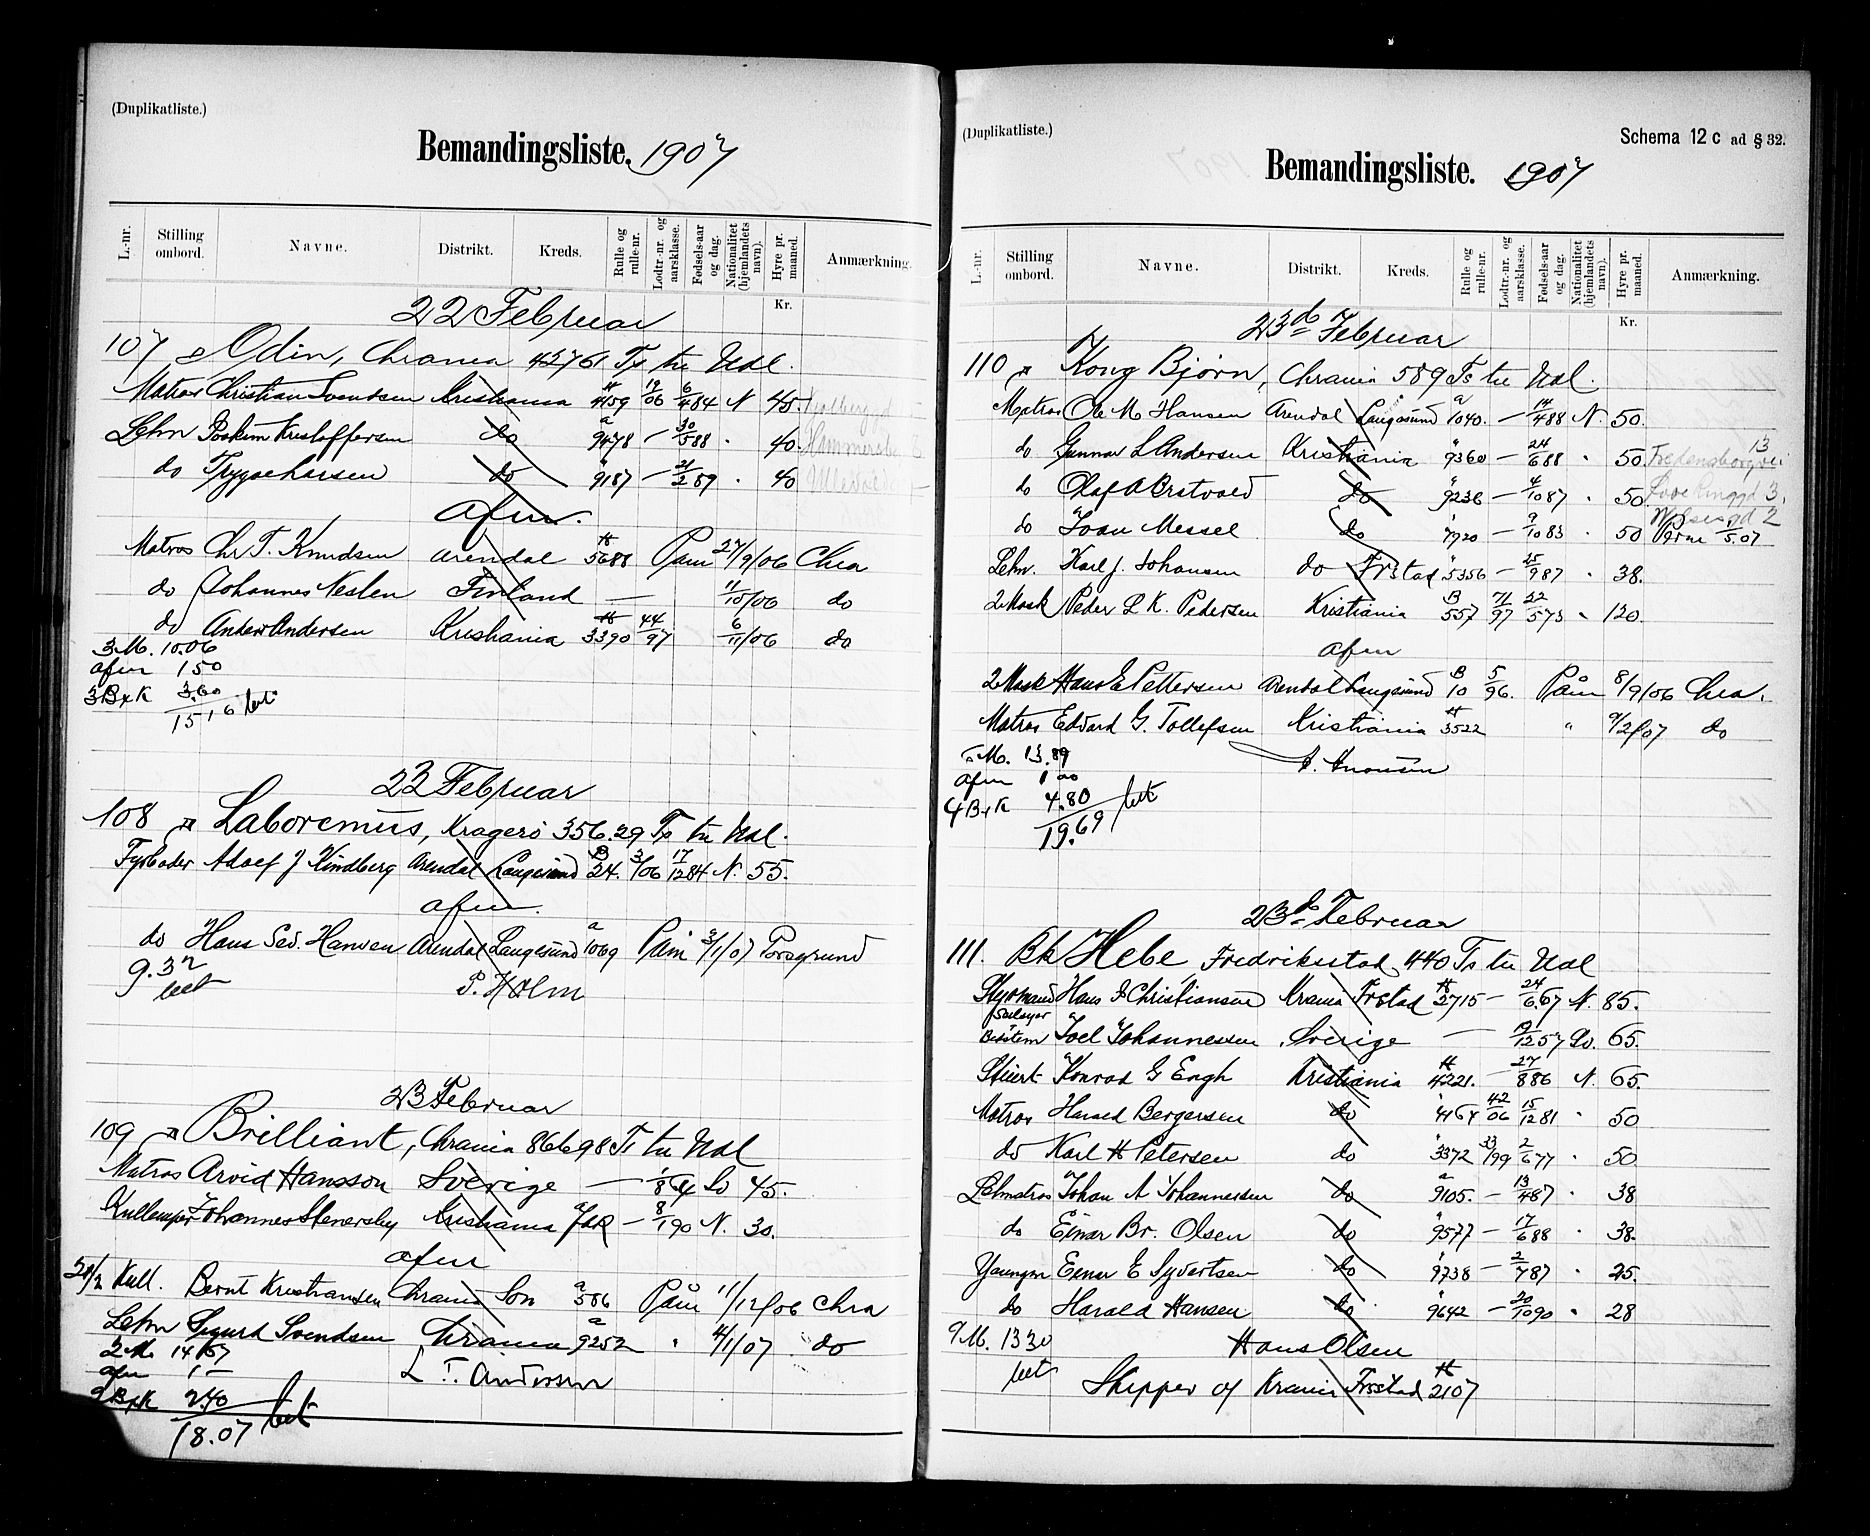 (Duplikatliste.)
Bemandingsliste. 1907
L.-nr. Stilling ombord. Navne. Distrikt. Kreds. Rulle og rulle-nr. Lodtr.-nr. og aarsklasse. Fødsels-aar og dag. Nationalitet (hjemlandets navn). Hyre pr. maaned. Anmærkning.
Kr.
22 Februar
107 Odin, Chrania 427 61 Ts til Udl.
Matros Christian Svendsen Kristiania 4159 19/06 6/484 N 45.
Letm Joakim Kristoffersen do a 9478 — 30/588 " 40.
do Trygve Larsen do 9187 — 21/289 " 40
Afm.
Matros Chr T. Knudsen Arendal 5688 Paam 27/9/06 Chra
do Johannes Neslen Finland — 11/10/06 do
do Anders Andersen Kristiania 3390 44/97 6/11/06 do
3 M. 10.06
afm 1 50
3 B & K 3.60
15 16 bet
23 Februar
108 Laboremus, Kragerö 356.29 Ts til Udl.
Fyrböder Adolf J Kindberg Arendal Langesund B 24. 3/06 17/1284 N. 55.
afm.
do Hans Sed. Hansen Arendal Langesund a 1069 Paam 3/1/07 Porsgrund
9.32
bet P. Holm
23 Februar
109 Brilliant, Chrania 866 98 Ts til Udl
Matros Arvid Hansson Sverige — Sv 45.
Kullemper Johannes Stenersby Kristiania — 8/190 N. 30.
afm
Kull. Bernt Kristiansen Chrania Son a 386 Paam 11/12/06 Chra
Letm Sigurd Svendsen Chrania a 9252 " 4/1/07 do
2 M. 14 67
afm 1 — L. T. Andersen
2 B & K 2.40
18.07 bet
(Duplikatliste.)
Schema 12 c ad § 32.
Bemandingsliste. 1907
L.-nr. Stilling ombord. Navne. Distrikt. Kreds. Rulle og rulle-nr. Lodtr.-nr. og aarsklasse. Fødsels-aar og dag. Nationalitet (hjemlandets navn). Hyre pr. maaned. Anmærkning.
Kr.
23d Februar
110 Kong Bjørn, Chrania 589 Ts til Udl.
Matros Ole M Hansen Arendal Langesund a 1040. — 14/488 N. 50.
do Gunnar L Andersen Kristiania " 9360 — 24/688 " 50 Fredensborgvei 13
do Olaf A Brstvold do 9236 — 4/1087 " 50
do Ivan Messel do 7920 — 9/1083 " 50
Letm. Karl J. Johansen do Frstad " 5356 — 25/987 " 38.
2 Mask Peder L K. Pedersen Kristiania B 557 71/97 22/573 " 120.
afm
2 Mask Hans E Pettersen Arendal Langesund B 10 5/96. Påm 8/9/06 Chra.
Matros Edvard G. Tollefsen Kristiania 3522 " 9/2/07 do
M. 13.89
afm 1 00
4 B & K 4.80 bet
19.69
23d Februar
111. Bk Hebe Fredrikstad 440 Ts til Udl
Styrmand Hans J Christiansen Krania Frstad 2715 — 24/6.67 N. 85.
Seilmager
Bdstem Joel Johannessen Sverige — 19/1257 Sv. 65.
Stuert Konrad G Engh Kristiania 4221. — 27/886 N. 65.
Matros Harald Bergersen do 4164 42/06 15/1281 " 50
do Karl H Petersen do " 3372 33/99 2/677 " 50
Letmatros Johan A Johannessen do a 9105. — 13/487 " 38
do Einar Br. Olsen do " 9577 — 17/688 " 38.
Youngm Einar E Syvertsen do 9738 — 2/787 " 25.
do Harald Hansen do " 9642 — 20/1090 " 28
9 M. 13 30 Hans Olsen
bet Skipper af Krania Frstad 2107